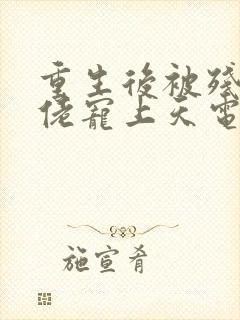 重生後被殘
佬寵上天電
施宣肴